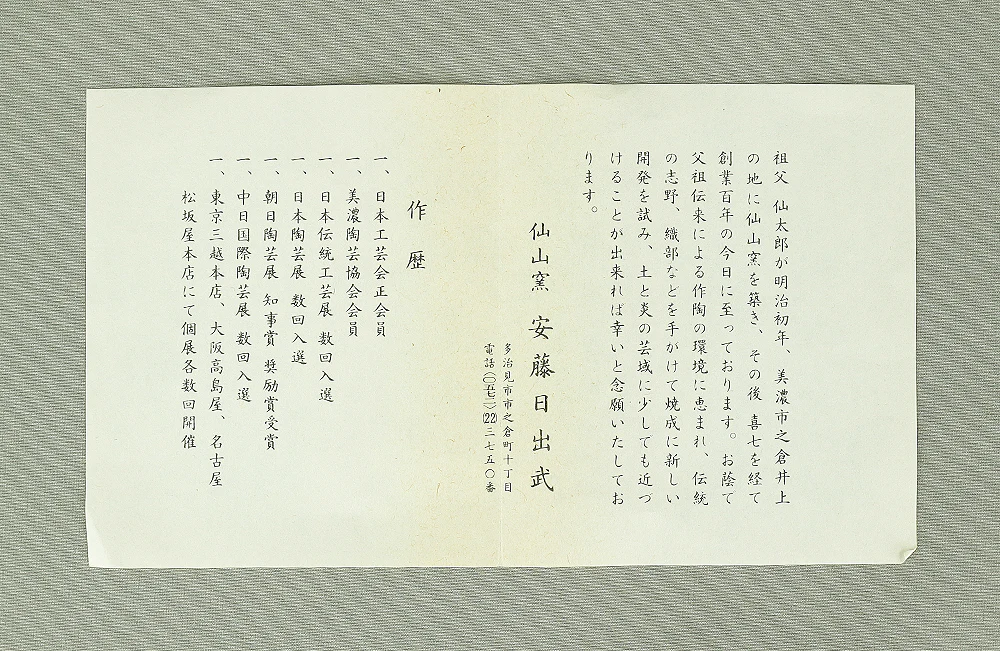 祖父　仙太郎が明治初年、美濃市之倉井上
の地に仙山窯を築き、その後　喜七を経て
創業百年の今日に至っております。お蔭て
父祖伝来による作陶の環境に恵まれ、伝統
の志野、織部などを手がけて焼成に新しい
開発を試み、土と炎の芸域に少しても近づ
けることが出来れば幸いと念願いたしてお
ります。
仙山窯　安藤日出武
多治見市市之倉町十丁目
電話(〇五七二)(22)三七五〇番
作歴
一、日本工芸会正会員
一、美濃陶芸協会会員
一、日本伝統工芸展　数回入選
一、日本陶芸展　数回入選
一、朝日陶芸展　知事賞　奨励賞受賞
一、中日国際陶芸展　数回入選
一、東京三越本店、大阪高島屋、名古屋
松坂屋本店にて個展各数回開催